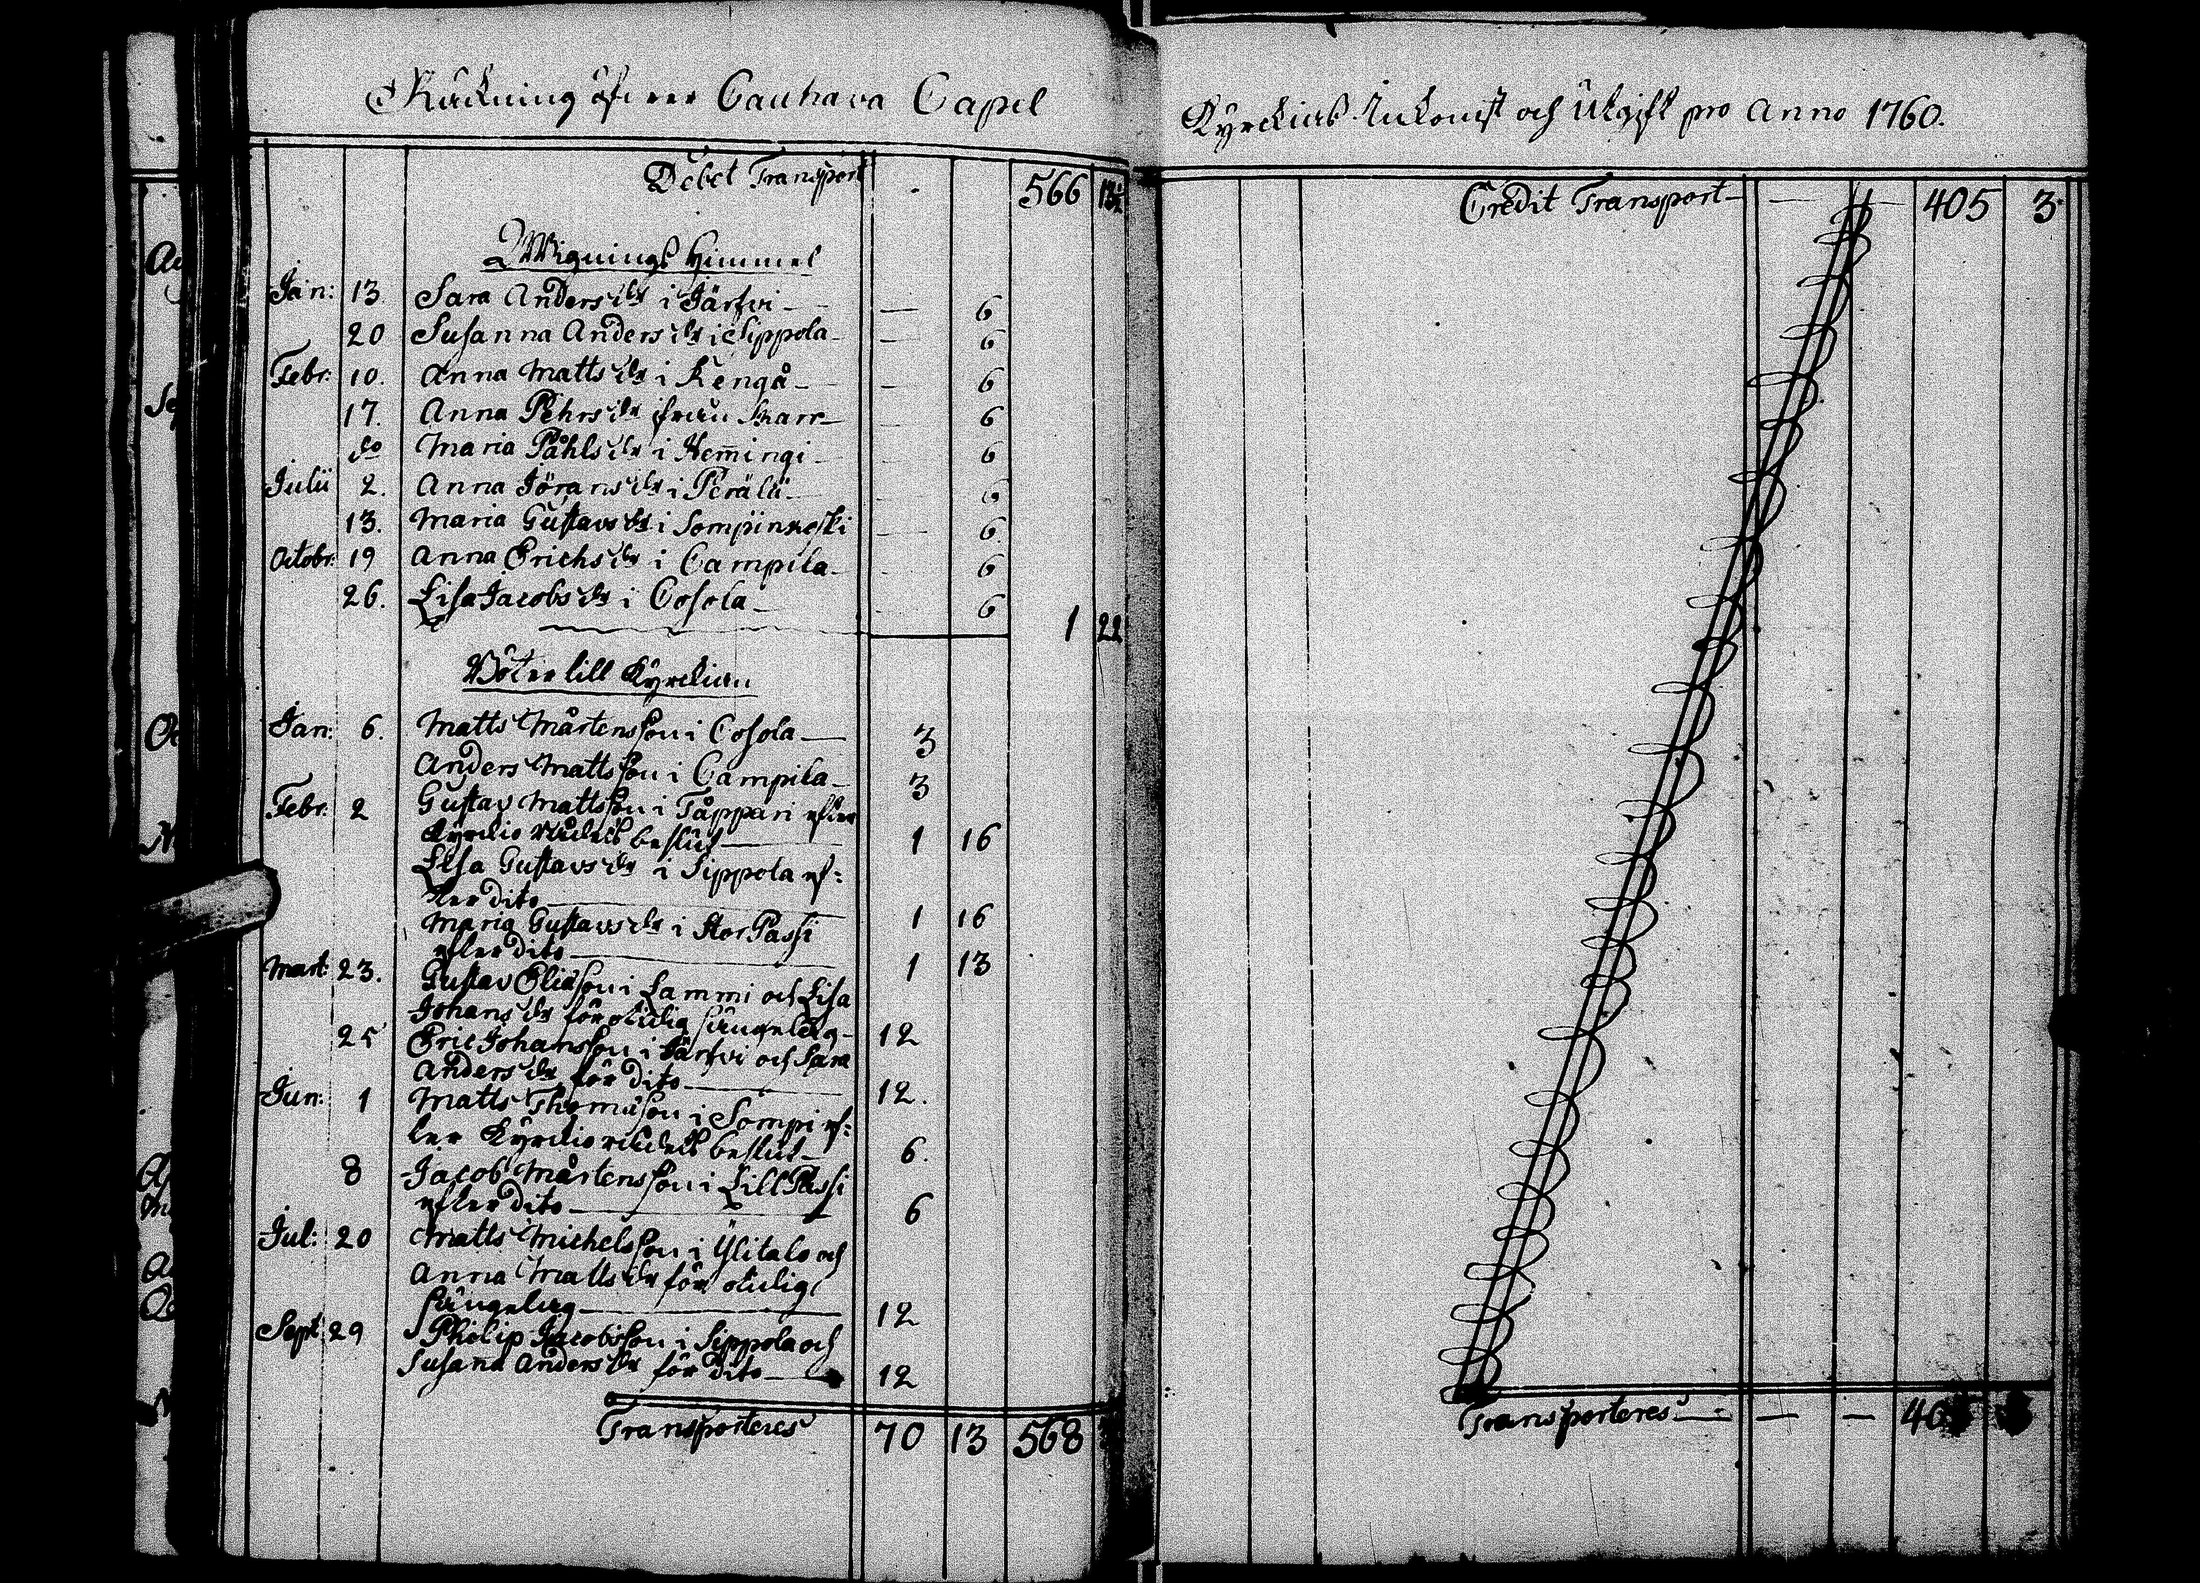 Räckning öfwer Cauhava Capel
Debet Transport 566 13½
Wignings Himmel
Jan: 13. Sara Andersdr i Järfwi — 6
20 Susanna Andersdr i Sippola — 6
Febr: 10. Anna Mattsdr i Kengå — 6
17. Anna Pehrsdr ifrån — 6
do Maria Påhlsdr i Hem̄ingi — 6
Julii 2. Anna Jöransdr i Perälä — 6
13. Maria Gustavsdr i Sompinkoski — 6
Octobr: 19 Anna Erichsdr i Campila — 6
26. Lisa Jacobsdr i Cosola — 6
1 22
Böter till Kyrckian
Jan: 6. Matts Mårtensson i Cosola — 3
Anders Mattsson i Campila — 3
Febr: 2 Gustav Mattsson i Tåppari efter
Kyrckio Rådets beslut — 1 16
Lisa Gustavsdr i Sippola ef:
ter dito — 1 16
Maria Gustavsdr i Stor Passi
efter dito — 1 13
Mart: 23. Gustav Eliasson i Lammi och Lisa
Johansdr för otidig sängelag — 12
25 Eric Johansson i Järfwi och Sara
Andersdr för dito — 12.
Jun: 1 Matts Thomasson i Sompi ef:
ter Kyrckio rådets beslut — 6.
8 Jacob Mårtensson i Lill Passi
efter dito — 6
Jul: 20 Matts Michelsson i Ylitalo och
Anna Mattsdr för otidig
sängelag — 12
Sept 29 Philip Jacobsson i Sippola och
Susana Andersdr för dito — 12
Transporteres 70 13 568
Kyrckias Inkomst och Utgift pro Anno 1760.
Credit Transport — 405 3.
Transporteres — — —